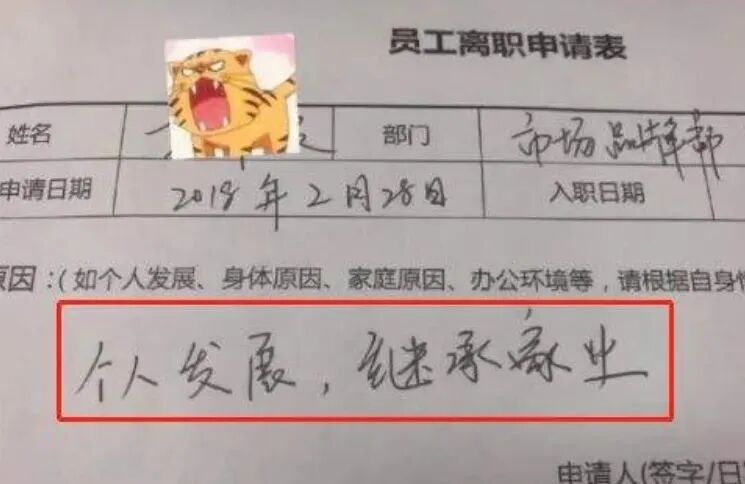 员工离职申请表
姓名 部门 市场品牌部
申请日期 2018年2月28日 入职日期
原因：(如个人发展、身体原因、家庭原因、办公环境等，请根据自身情
个人发展，继承家业
申请人(签字/日